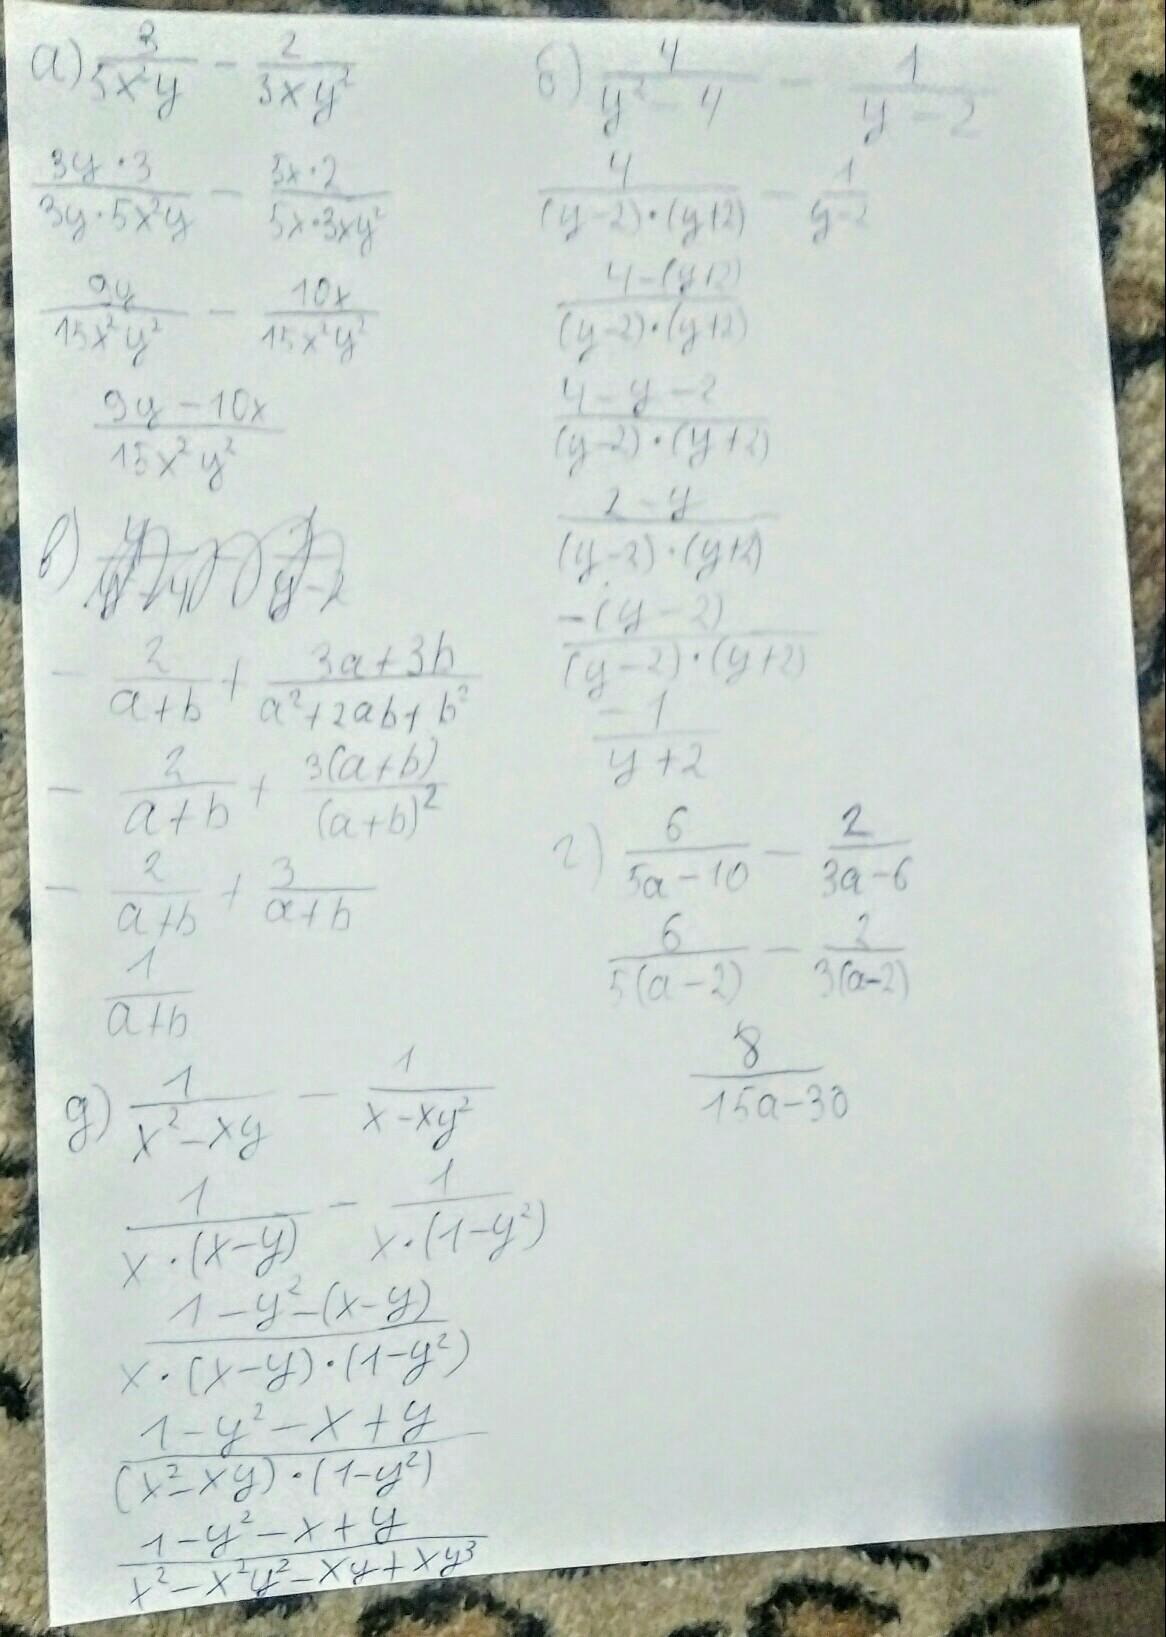 а) 3/(5x²y) − 2/(3xy²)
(3y·3)/(3y·5x²y) − (5x·2)/(5x·3xy²)
9y/(15x²y²) − 10x/(15x²y²)
(9y−10x)/(15x²y²)
б) 4/(y²−4) − 1/(y−2)
4/((y−2)·(y+2)) − 1/(y−2)
(4−(y+2))/((y−2)·(y+2))
(4−y−2)/((y−2)·(y+2))
(2−y)/((y−2)·(y+2))
−(y−2)/((y−2)·(y+2))
−1/(y+2)
в)
− 2/(a+b) + (3a+3b)/(a²+2ab+b²)
− 2/(a+b) + 3(a+b)/(a+b)²
− 2/(a+b) + 3/(a+b)
1/(a+b)
г) 6/(5a−10) − 2/(3a−6)
6/(5(a−2)) − 2/(3(a−2))
8/(15a−30)
д) 1/(x²−xy) − 1/(x−xy²)
1/(x·(x−y)) − 1/(x·(1−y²))
(1−y²−(x−y))/(x·(x−y)·(1−y²))
(1−y²−x+y)/((x²−xy)·(1−y²))
(1−y²−x+y)/(x²−x²y²−xy+xy³)